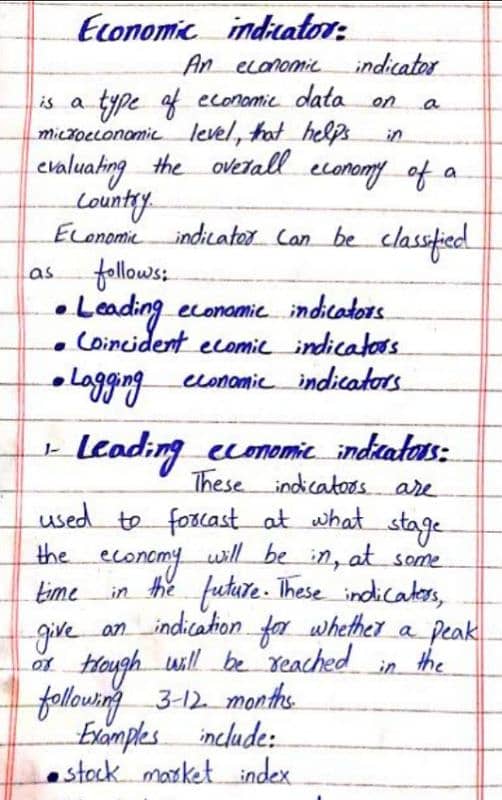 Economic indicator:
An economic indicator
is a type of economic data on a
microeconomic level, that helps in
evaluating the overall economy of a
Country.
Economic indicator Can be classified
as follows:
• Leading economic indicators
• Coincident ecomic indicators
• Lagging economic indicators
1- Leading economic indicators:
These indicators are
used to forcast at what stage
the economy will be in, at some
time in the future. These indicators,
give an indication for whether a peak
or trough will be reached in the
following 3-12 months.
Examples include:
• stock market index